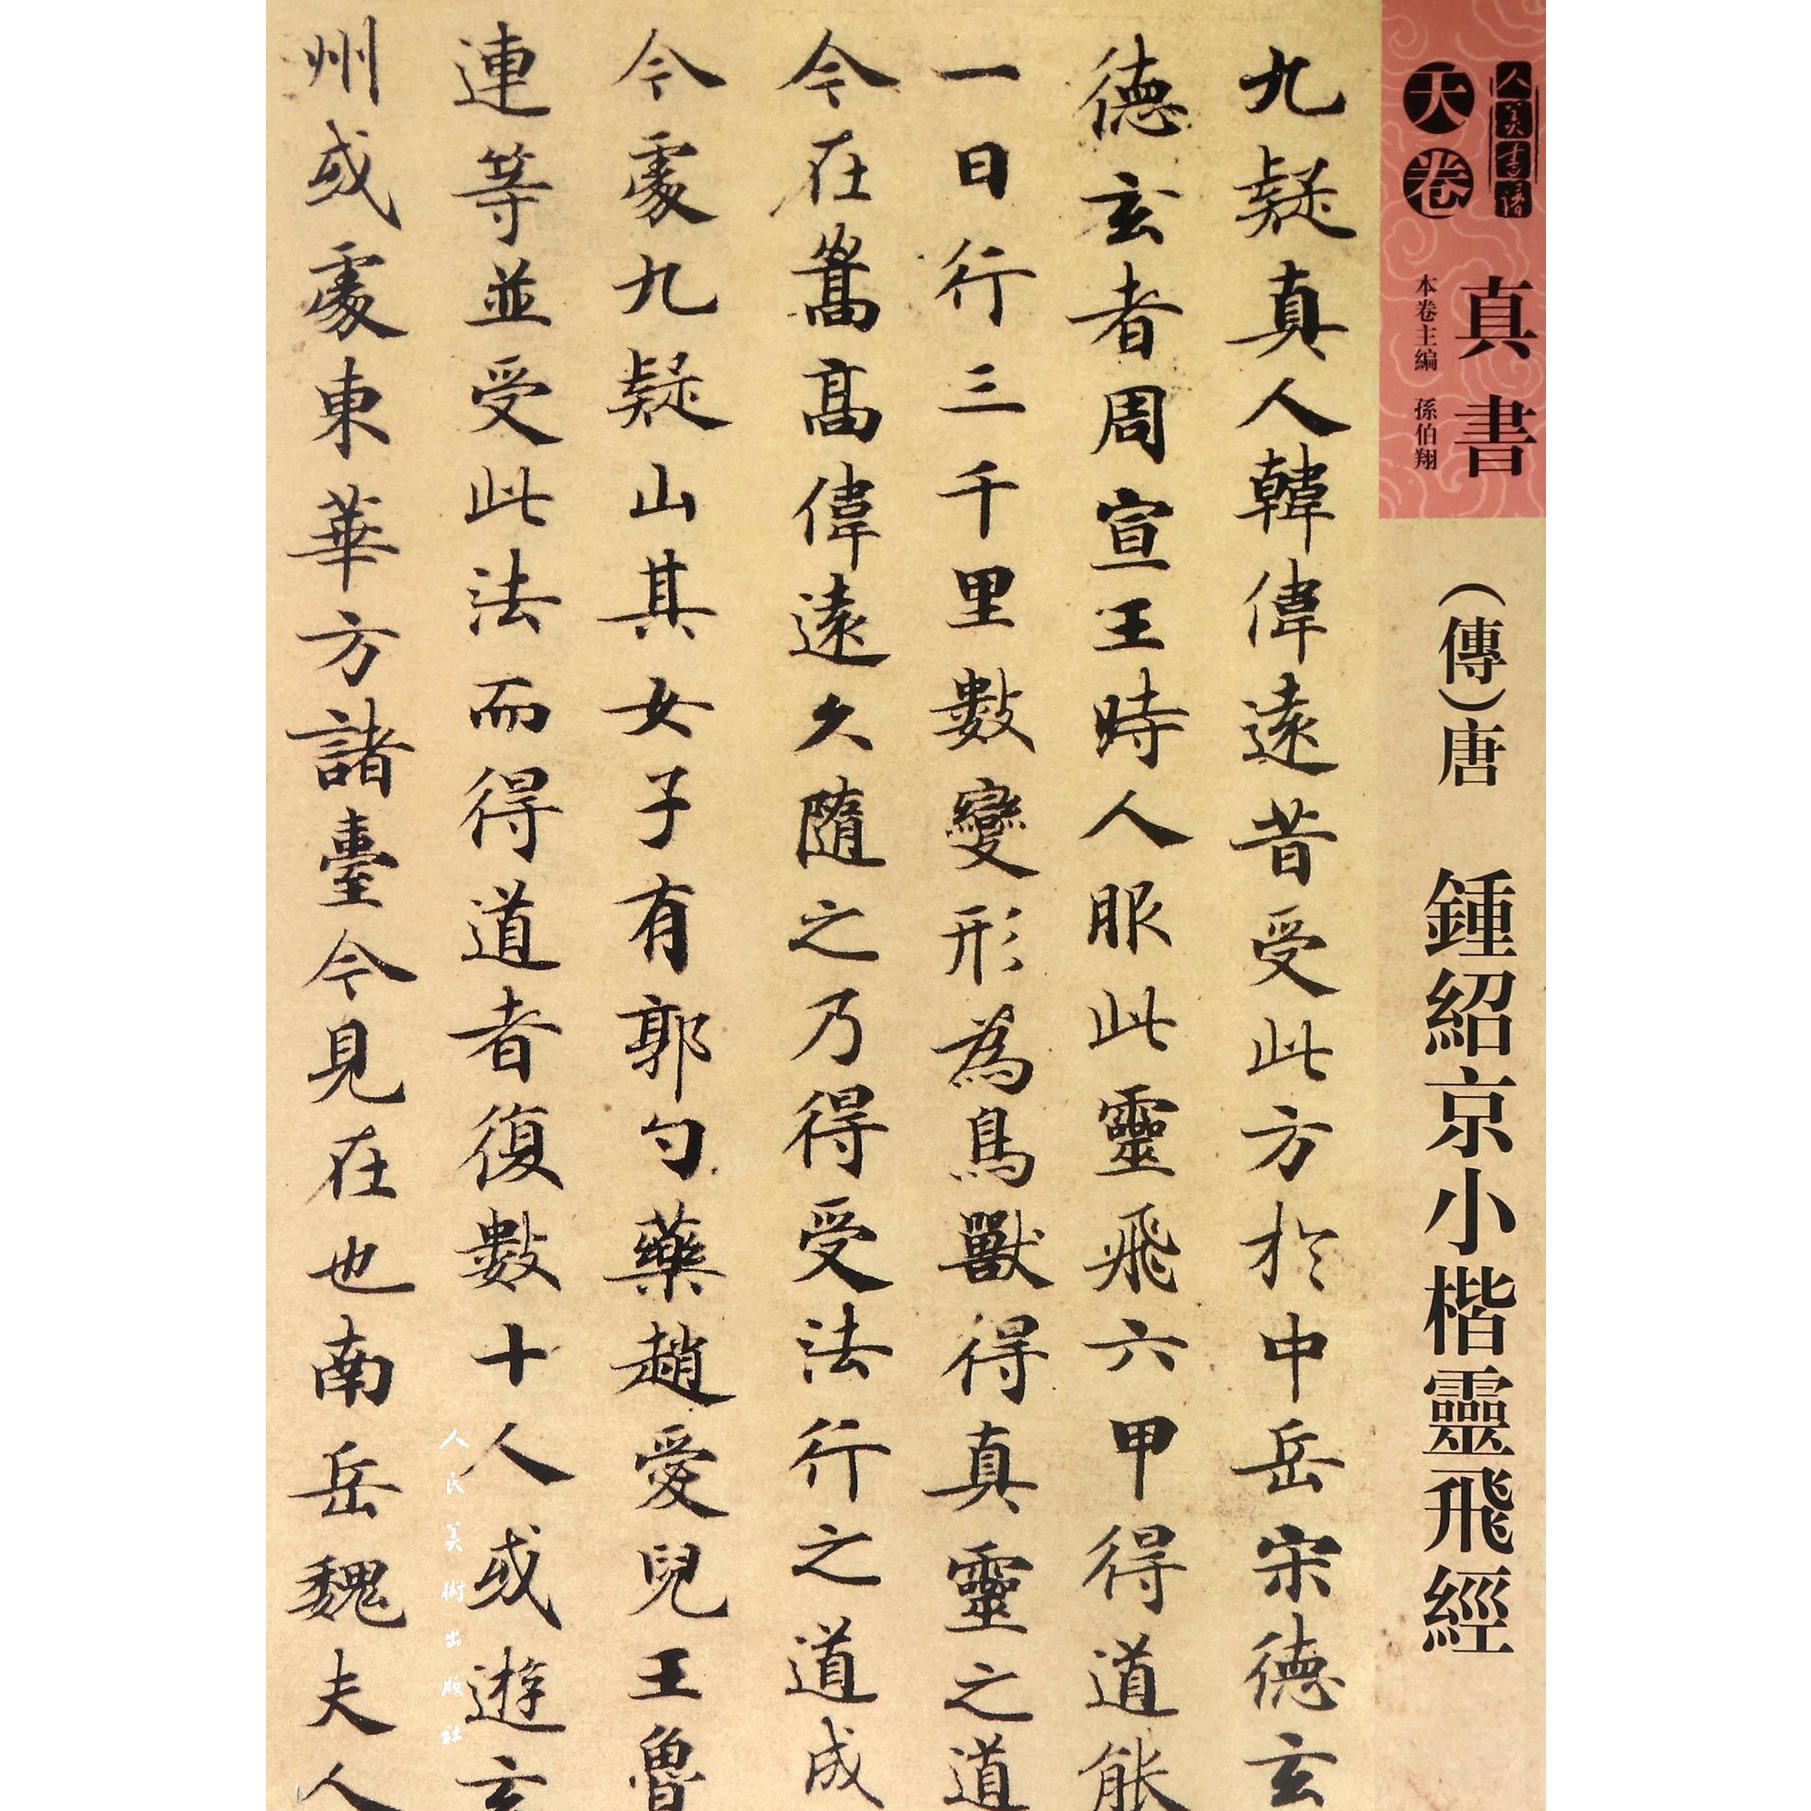 人美書譜
天卷
真書
本卷主編 孫伯翔
(傳)唐 鍾紹京小楷靈飛經
九疑真人韓偉遠昔受此方於中岳宋德玄
德玄者周宣王時人服此靈飛六甲得道能
一日行三千里數變形為鳥獸得真靈之道
今在嵩高偉遠久隨之乃得受法行之道成
今處九疑山其女子有郭勺藥趙愛兒王魯
連等並受此法而得道者復數十人或遊玄
州或處東華方諸臺今見在也南岳魏夫人
人民美術出版社